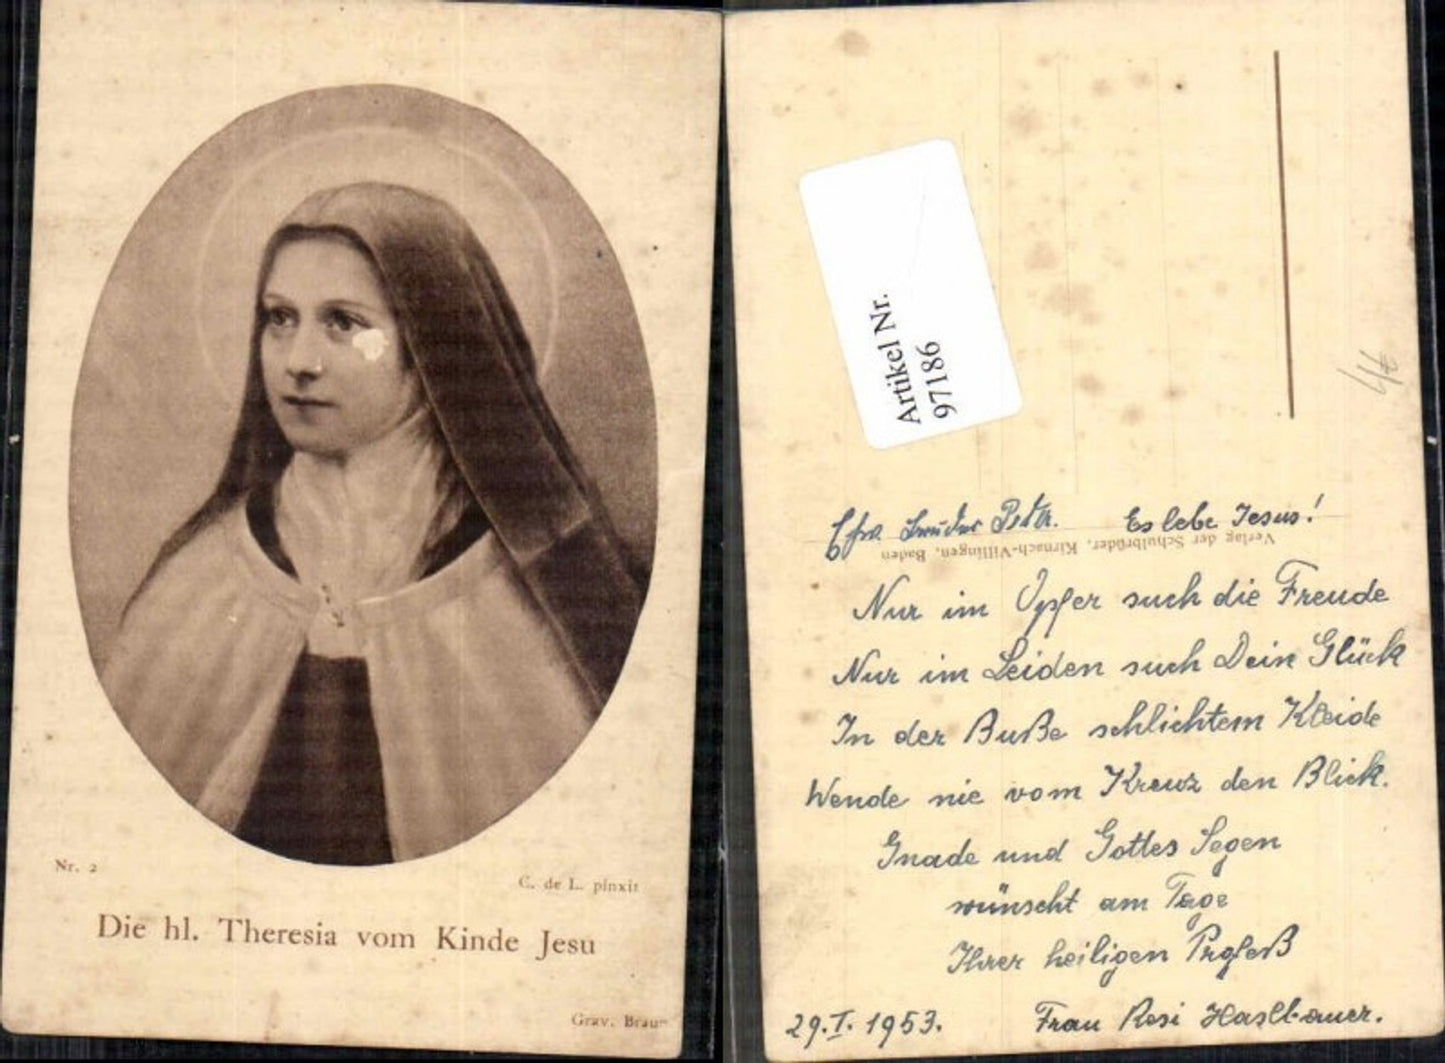 Nr. 2
C. de L. pinxit
Die hl. Theresia vom Kinde Jesu
Grav. Braun
Artikel Nr.
97186
Es lebe Jesus!
Verlag der Schulbrüder, Kirnach-Villingen, Baden
Nur im Opfer such die Freude
Nur im Leiden such Dein Glück
In der Buße schlichtem Kleide
Wende nie vom Kreuz den Blick.
Gnade und Gottes Segen
wünscht am Tage
Ihrer heiligen Profeß
29.I.1953. Frau Resi Haslbauer.